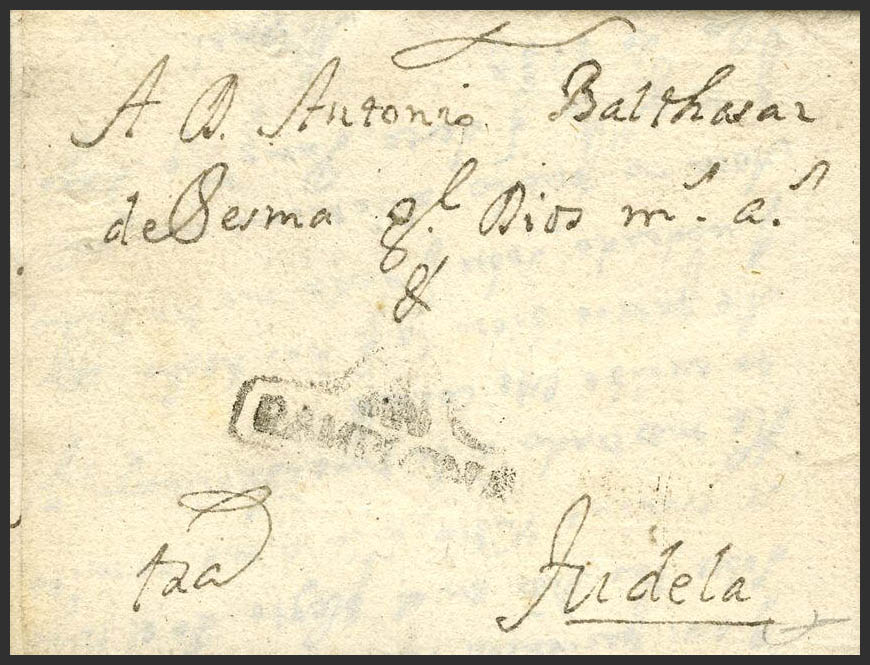 A D. Antonio Balthasar
de Sesma gl. Dios ms. as.
&
PAMPLONA
Tudela